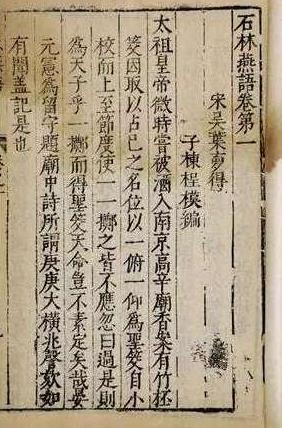 石林燕語卷第一
宋吳葉夢得
子棟桯模編
太祖皇帝微時嘗被酒入南京高辛廟香案有竹桮
筊因取以占己之名位以一俯一仰為聖筊自小
校而上至節度使一一擲之皆不應忽曰過是則
為天子乎一擲而得聖筊天命豈不素定矣哉晏
元憲為留守題廟中詩所謂庚庚大橫兆謦欬如
有聞蓋記是也